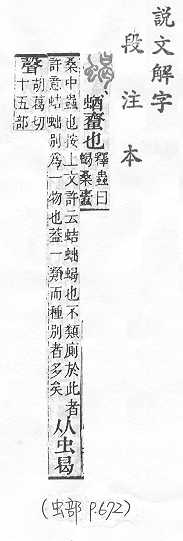 說文解字
段注本
蝎
蝤𧓉也
釋蟲曰
蝎桑蠹
桑中蟲也按上文許云蛣䖦蝎也不類廁於此者
許意蛣䖦別爲一物也葢一類而種別者多矣
从虫曷
聲
胡葛切
十五部
(虫部 P.672)